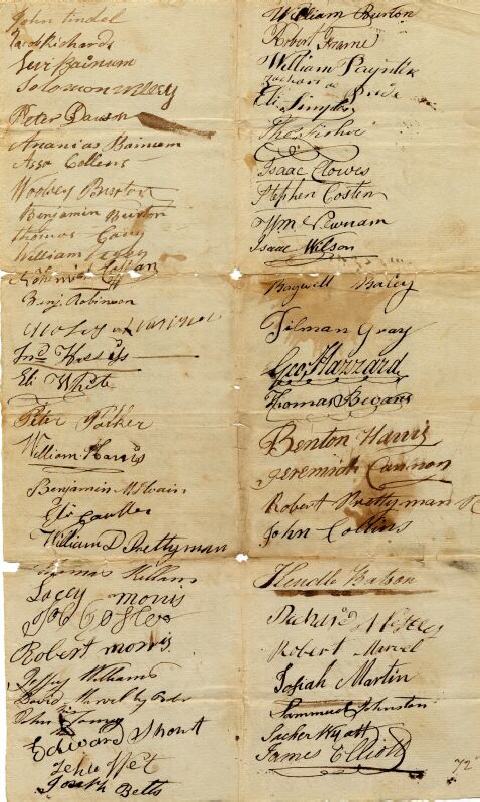 John tindel
Jacob Richards
Levi Bainum
Solomon Willey
Peter Dawson
Ananias Bainum
Asa Collens
Woolsey Burton
Benjamin Burton
thomas Carey
William
Nehemiah
Benj. Robinson
Jno Hosiss
Eli White
Peter Parker
William Harris
Benjamin McIlvain
Eli Caulk
William D Prettyman
Killam
Lacey morris
Job
Robert morris
Jeffery Williams
David Marvel by order
John Young
Edward Short
Joseph Betts
William Burton
Robert Frame
William Paynter
Eli Simpler
Thos Fisher
Isaac Clowes
Stephen Costen
Wm Newnam
Isaac Wilson
Bagwell Baley
Tilman Gray
Geo Hazzard
Thomas Bevans
Benton Harris
Jeremiah Cannon
Robert Prettyman
John Collins
Hendle Batson
Richard
Robert Marvel
Josiah Martin
Sammuel Johnston
Tucker Wyatt
James Elliott
72